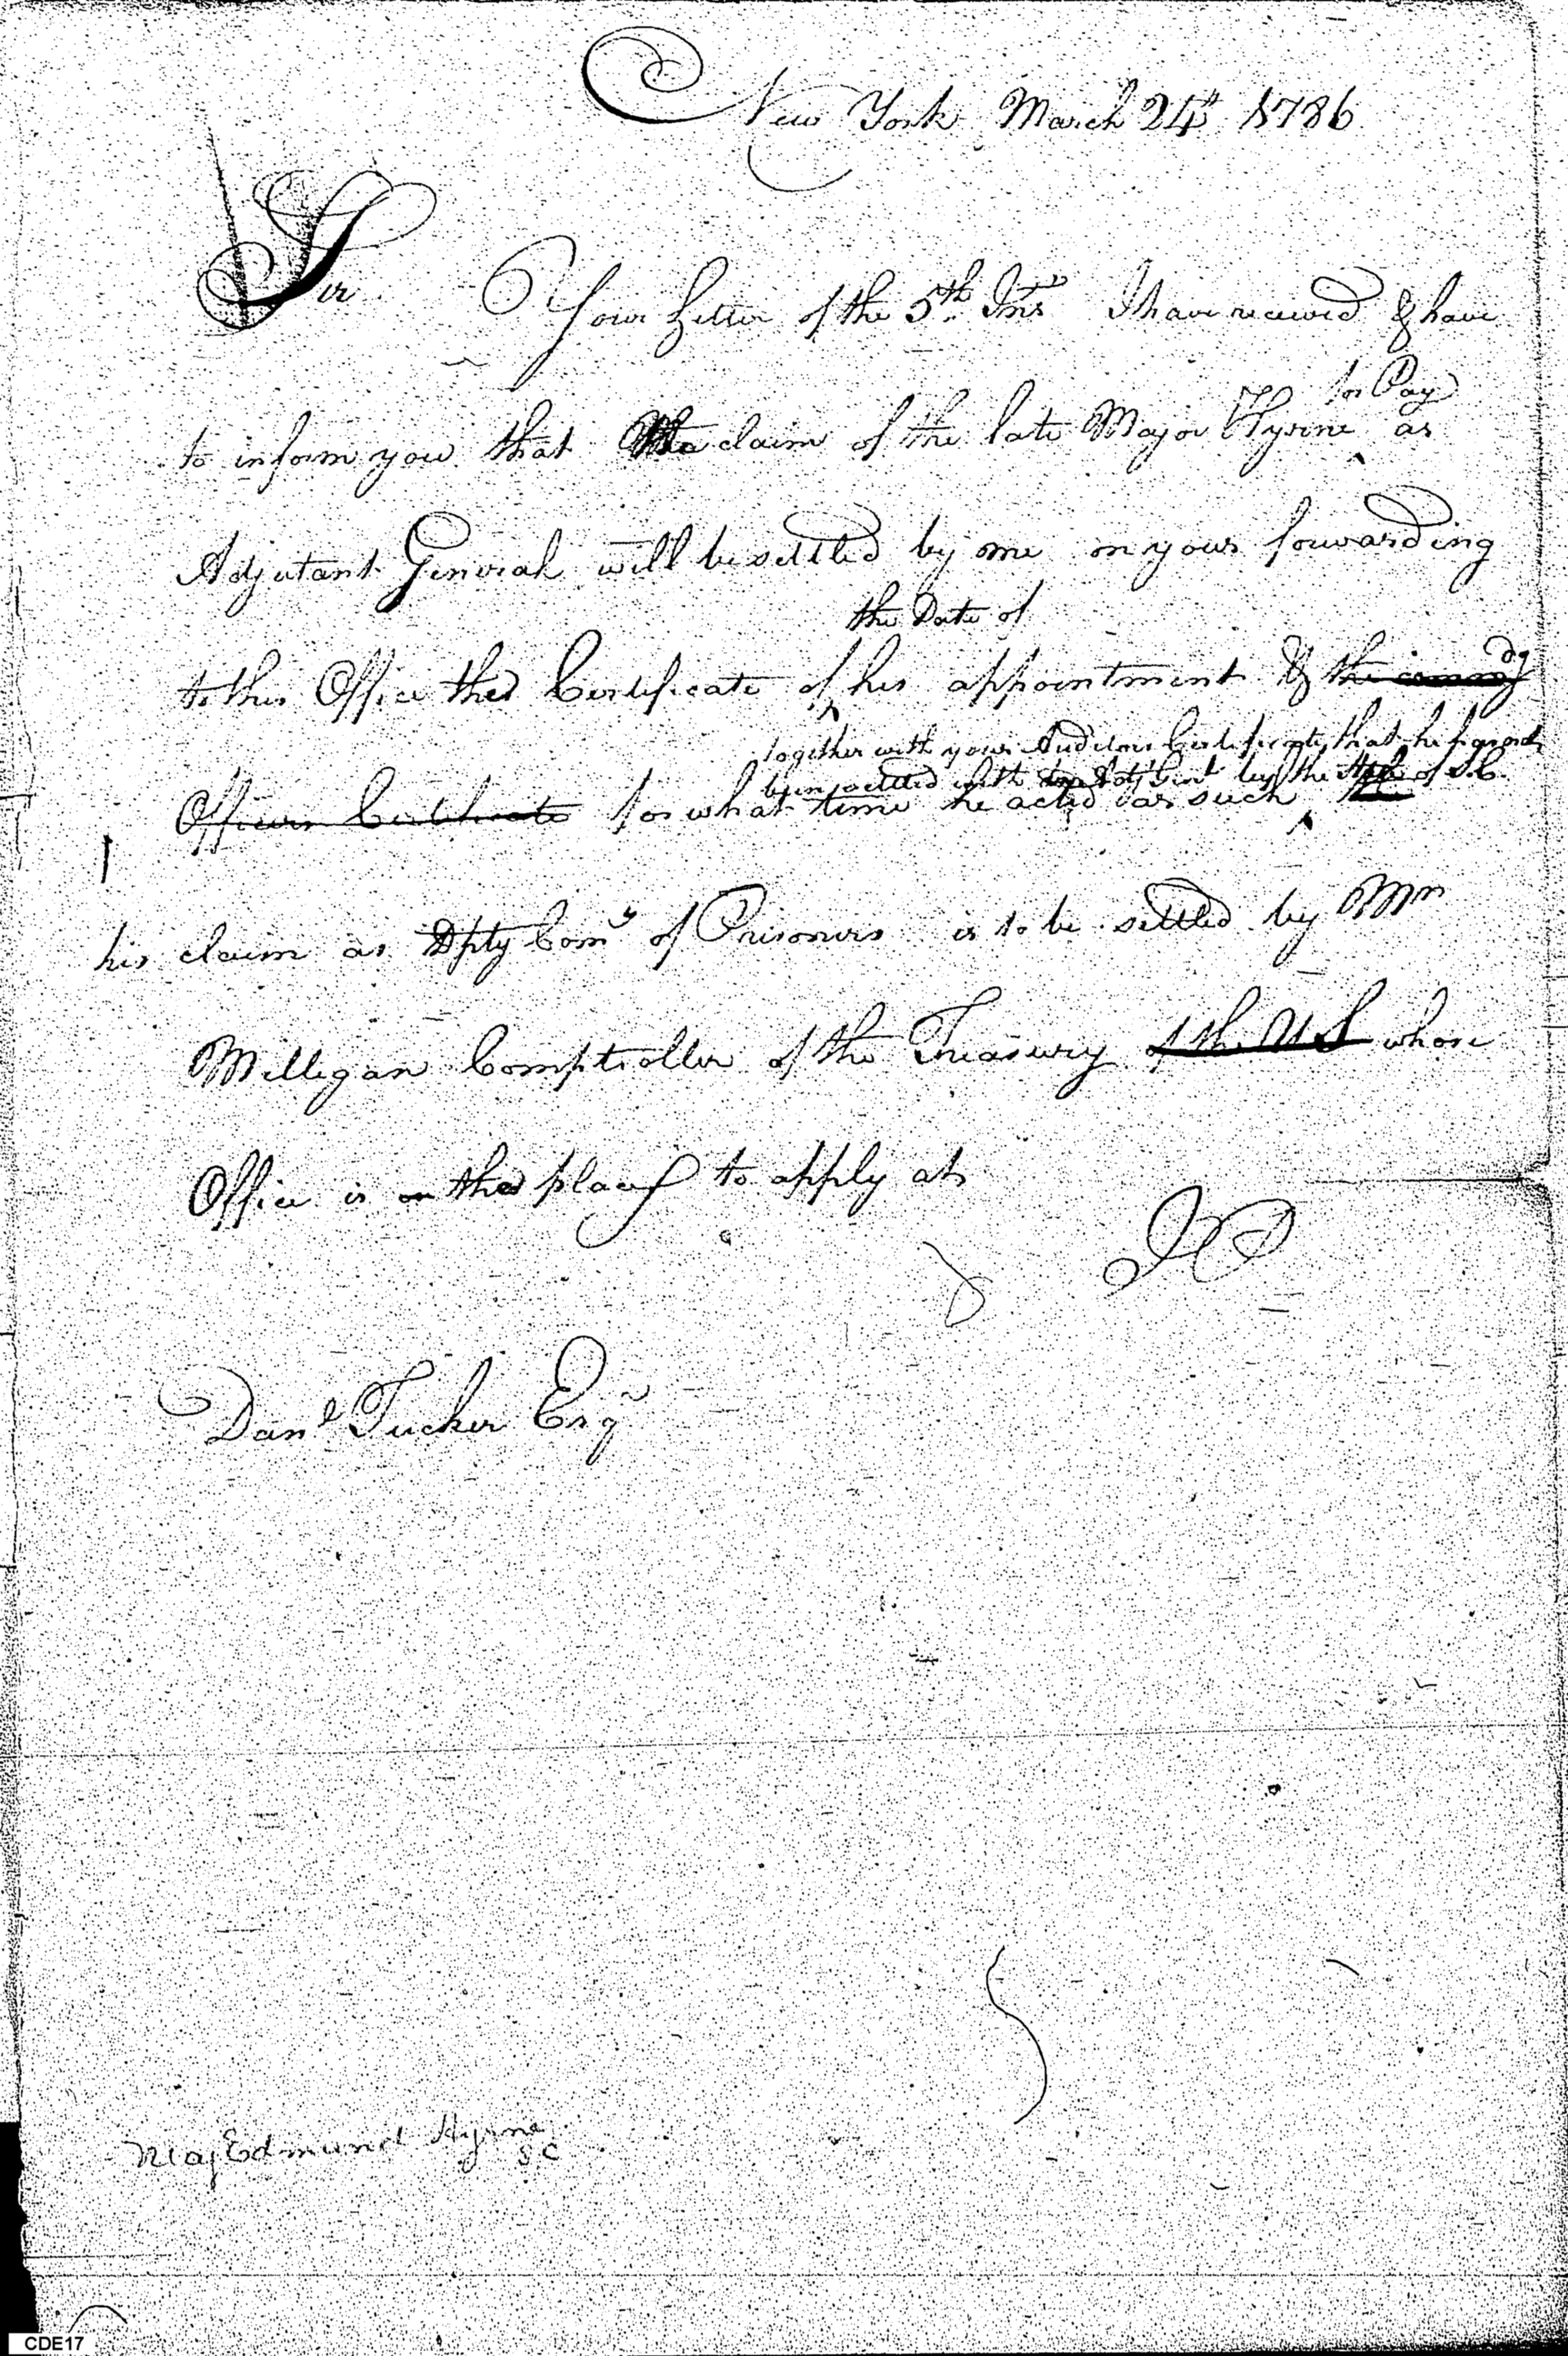 New York March 24th 1786
Sir Your Letter of the 5th Inst I have received & have
for Pay
to inform you that the claim of the late Major Hyrne as
Adjutant General will be settled by me on your forwarding
the Date of
to this Office the Certificate of his appointment & the
together with your Auditors Certificate, that he has not
Officers Certificate for what time he acted as such
been settled with by the State of S.C.
his claim as Dpty Comy of Prisoners is to be settled by Mr
Milligan Comptroller of the Treasury of the U S whose
Office is the place to apply at
Danl Tucker Esqr
Maj Edmund Hyrne
S C
CDE17